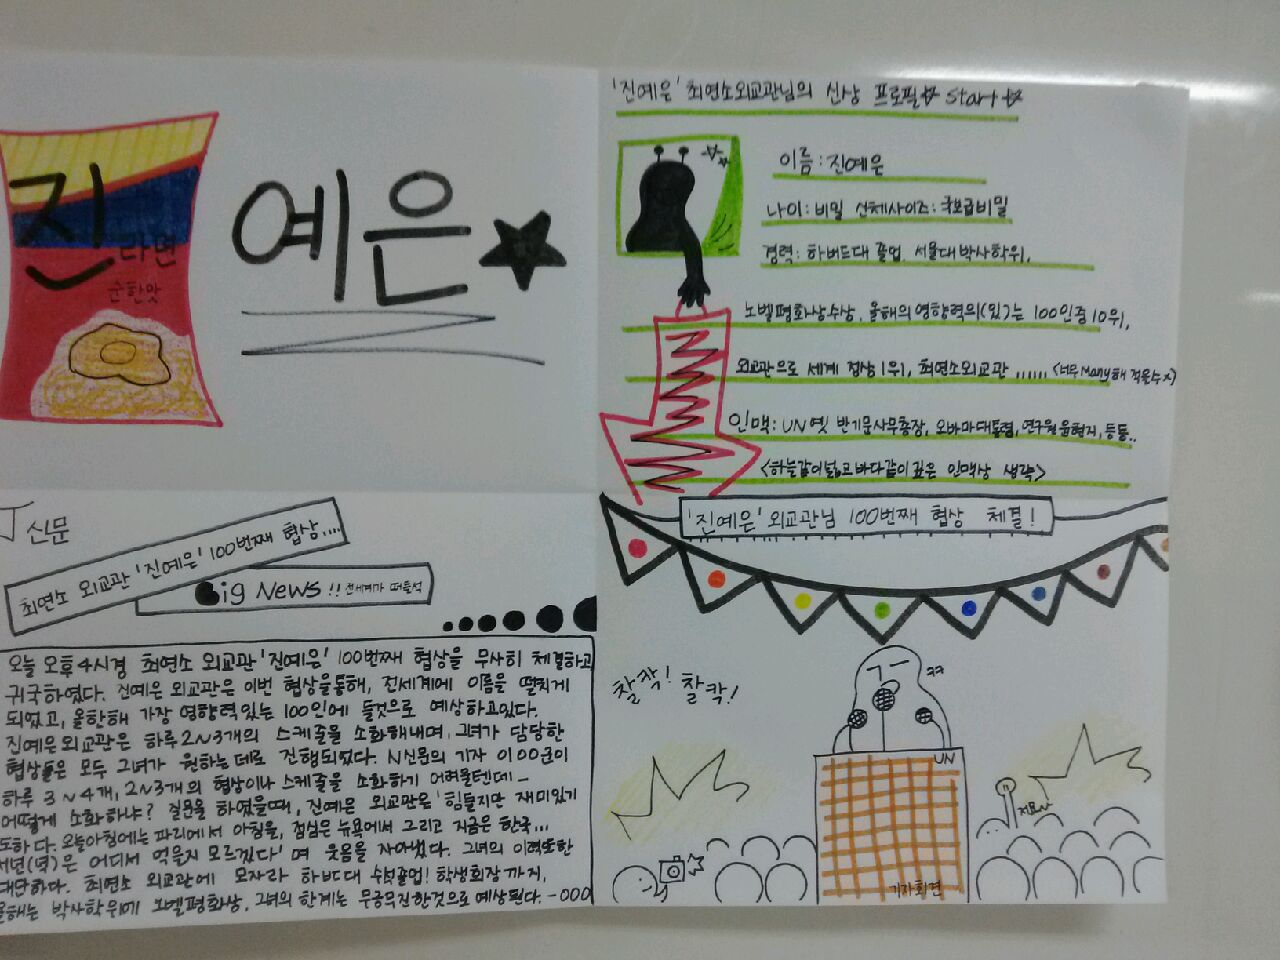 진
라면
순한맛
예은
'진예은' 최연소외교관님의 신상 프로필☆ start ☆
이름 : 진예은
나이 : 비밀 신체사이즈 : 국보급비밀
경력 : 하버드대 졸업, 서울대박사학위,
노벨평화상수상, 올해의영향력의(있)는 100인중 10위,
외교관으로 세계 협상 1위, 최연소외교관 ...... <너무 Many해 적을수 x>
인맥 : UN 옛 반기문사무총장, 오바마대통령, 연구원윤현지, 등등..
<하늘같이넓고바다같이깊은 인맥상 생략>
J신문
최연소 외교관 '진예은' 100번째 협상...
Big News !! 전세계가 떠들석
오늘 오후4시경 최연소 외교관 '진예은' 100번째 협상을 무사히 체결하고
귀국하였다. 진예은 외교관은 이번 협상을통해, 전세계에 이름을 떨치게
되었고, 올한해 가장 영향력있는 100인에 들것으로 예상하고있다.
진예은외교관은 하루2~3개의 스케줄을 소화해내며, 그녀가 담당한
협상들은 모두 그녀가 원하는데로 진행되었다. N신문의 기자 이00군이
하루 3~4개, 2~3개의 협상이나 스케줄을 소화하기 어려울텐데-
어떻게 소화하냐? 질문을 하였을때, 진예은 외교관은 '힘들지만 재미있기
도하다. 오늘아침에는 파리에서 아침을, 점심은 뉴욕에서 그리고 지금은 한국...
저년(녁)은 어디서 먹을지 모르겠다' 며 웃음을 자아냈다. 그녀의 이력또한
대단하다. 최연소 외교관에 모자라 하버드대 수석졸업! 학생회장까지,
올해는 박사학위에 노벨평화상, 그녀의 한계는 무궁무진한것으로 예상된다. -000
'진예은' 외교관님 100번째 협상 체결!
찰칵! 찰칵!
UN
기자회견
저요~